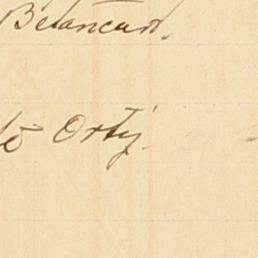 Betancurt.
Ortiz